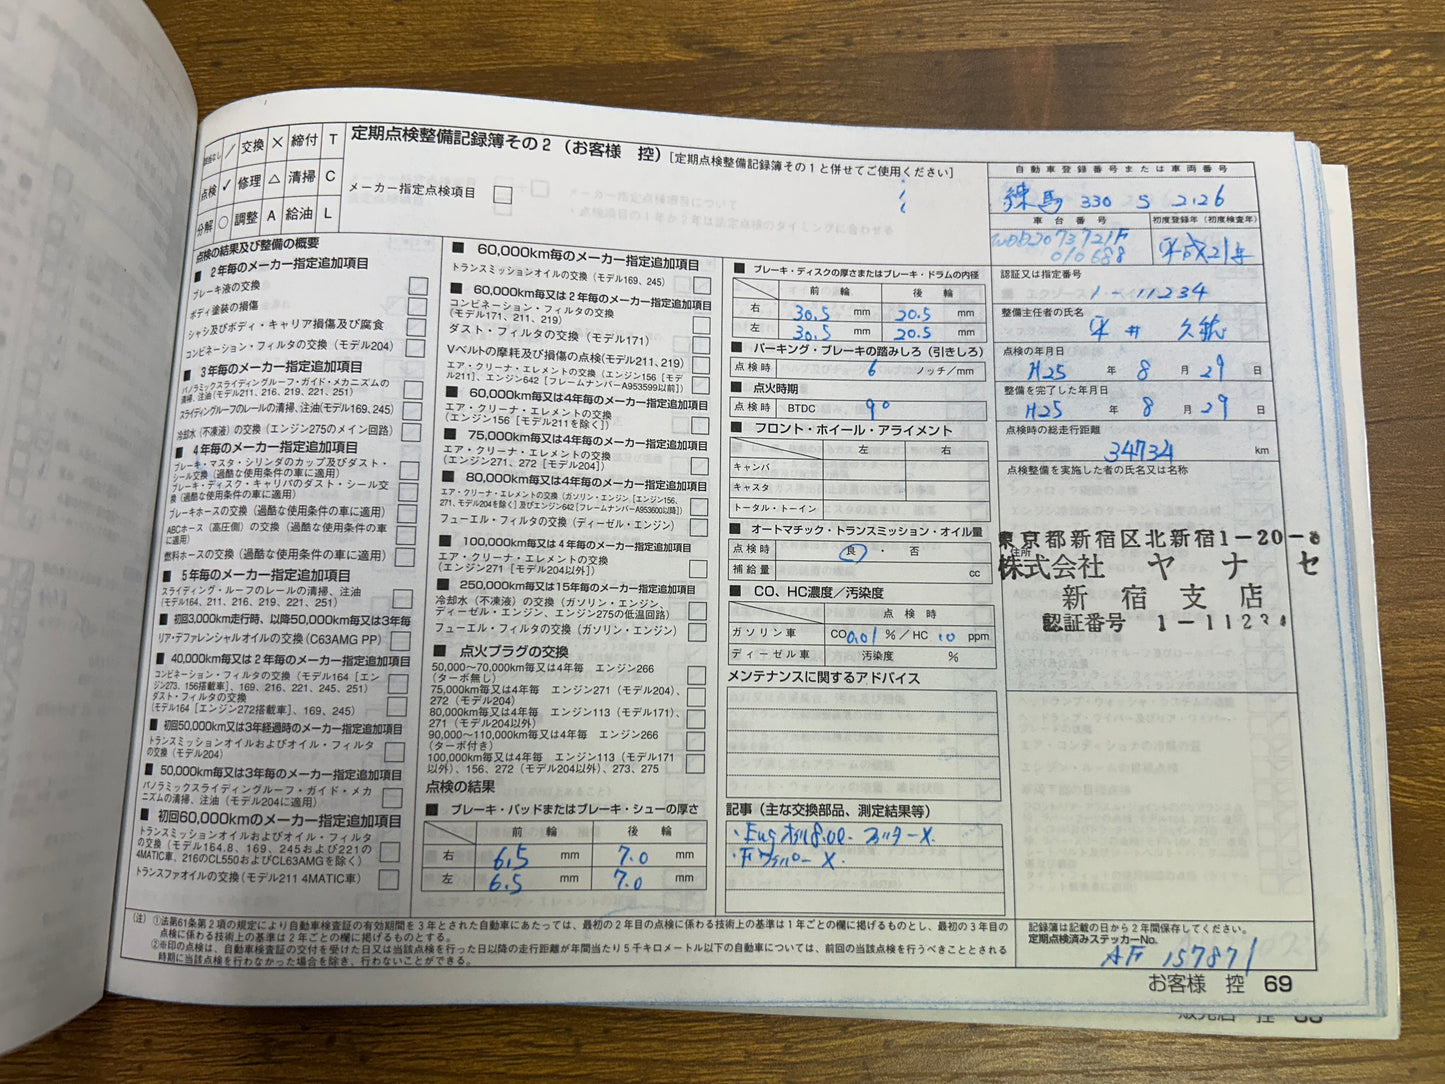 ／ 交換 ✕ 締付 T
点検 ✓ 修理 △ 清掃 C
分解 ○ 調整 A 給油 L
定期点検整備記録簿その2（お客様 控）［定期点検整備記録簿その1と併せてご使用ください］
メーカー指定点検項目
点検の結果及び整備の概要
■ 2年毎のメーカー指定追加項目
ブレーキ液の交換
ボディ塗装の損傷
シャシ及びボディ・キャリア損傷及び腐食
コンビネーション・フィルタの交換（モデル204）
■ 3年毎のメーカー指定追加項目
パノラミックスライディングルーフ・ガイド・メカニズムの
清掃、注油（モデル211、216、219、221、251）
スライディングルーフのレールの清掃、注油（モデル169、245）
冷却水（不凍液）の交換（エンジン275のメイン回路）
■ 4年毎のメーカー指定追加項目
ブレーキ・マスタ・シリンダのカップ及びダスト・
シール交換（過酷な使用条件の車に適用）
ブレーキ・ディスク・キャリパのダスト・シール交
換（過酷な使用条件の車に適用）
ブレーキホースの交換（過酷な使用条件の車に適用）
ABCホース（高圧側）の交換（過酷な使用条件の車
に適用）
燃料ホースの交換（過酷な使用条件の車に適用）
■ 5年毎のメーカー指定追加項目
スライディング・ルーフのレールの清掃、注油
（モデル164、211、216、219、221、251）
■ 初回3,000km走行時、以降50,000km毎又は3年毎
リア・デファレンシャルオイルの交換（C63AMG PP）
■ 40,000km毎又は2年毎のメーカー指定追加項目
コンビネーション・フィルタの交換（モデル164［エン
ジン273、156搭載車］、169、216、221、245、251）
ダスト・フィルタの交換
（モデル164［エンジン272搭載車］、169、245）
■ 初回50,000km又は3年経過時のメーカー指定追加項目
トランスミッションオイルおよびオイル・フィルタ
の交換（モデル204）
■ 50,000km毎又は3年毎のメーカー指定追加項目
パノラミックスライディングルーフ・ガイド・メカ
ニズムの清掃、注油（モデル204に適用）
■ 初回60,000kmのメーカー指定追加項目
トランスミッションオイルおよびオイル・フィルタ
の交換（モデル164.8、169、245および221の
4MATIC車、216のCL550およびCL63AMGを除く）
トランスファオイルの交換（モデル211 4MATIC車）
■ 60,000km毎のメーカー指定追加項目
トランスミッションオイルの交換（モデル169、245）
■ 60,000km毎又は2年毎のメーカー指定追加項目
コンビネーション・フィルタの交換
（モデル171、211、219）
ダスト・フィルタの交換（モデル171）
Vベルトの摩耗及び損傷の点検（モデル211、219）
エア・クリーナ・エレメントの交換（エンジン156［モデ
ル211］、エンジン642［フレームナンバーA953599以前］）
■ 60,000km毎又は4年毎のメーカー指定追加項目
エア・クリーナ・エレメントの交換
（エンジン156［モデル211を除く］）
■ 75,000km毎又は4年毎のメーカー指定追加項目
エア・クリーナ・エレメントの交換
（エンジン271、272［モデル204］）
■ 80,000km毎又は4年毎のメーカー指定追加項目
エア・クリーナ・エレメントの交換（ガソリン・エンジン［エンジン156、
271、モデル204を除く］及びエンジン642［フレームナンバーA953600以降］）
フューエル・フィルタの交換（ディーゼル・エンジン）
■ 100,000km毎又は4年毎のメーカー指定追加項目
エア・クリーナ・エレメントの交換
（エンジン271［モデル204以外］）
■ 250,000km毎又は15年毎のメーカー指定追加項目
冷却水（不凍液）の交換（ガソリン・エンジン、
ディーゼル・エンジン、エンジン275の低温回路）
フューエル・フィルタの交換（ガソリン・エンジン）
■ 点火プラグの交換
50,000〜70,000km毎又は4年毎 エンジン266
（ターボ無し）
75,000km毎又は4年毎 エンジン271（モデル204）、
272（モデル204）
80,000km毎又は4年毎 エンジン113（モデル171）、
271（モデル204以外）
90,000〜110,000km毎又は4年毎 エンジン266
（ターボ付き）
100,000km毎又は4年毎 エンジン113（モデル171
以外）、156、272（モデル204以外）、273、275
点検の結果
■ ブレーキ・パッドまたはブレーキ・シューの厚さ
前 輪 後 輪
右 6.5 mm 7.0 mm
左 6.5 mm 7.0 mm
■ ブレーキ・ディスクの厚さまたはブレーキ・ドラムの内径
前 輪 後 輪
右 30.5 mm 20.5 mm
左 30.5 mm 20.5 mm
■ パーキング・ブレーキの踏みしろ（引きしろ）
点検時 6 ノッチ/mm
■ 点火時期
点検時 BTDC 9°
■ フロント・ホイール・アライメント
左 右
キャンバ
キャスタ
トータル・トーイン
■ オートマチック・トランスミッション・オイル量
点検時 良 ・ 否
補給量 cc
■ CO、HC濃度／汚染度
点 検 時
ガソリン車 CO 0.01 %／HC 10 ppm
ディーゼル車 汚染度 %
メンテナンスに関するアドバイス
記事（主な交換部品、測定結果等）
・Engオイル8.0ℓ. フィルターX.
・Fワイパー X.
自動車登録番号または車両番号
練馬 330 S 2126
車台番号 初度登録年（初度検査年）
WDD2073721F
010688 平成21年
認証又は指定番号
1-11234
整備主任者の氏名
平井
点検の年月日
H25 年 8 月 29 日
整備を完了した年月日
H25 年 8 月 29 日
点検時の総走行距離
34734 km
点検整備を実施した者の氏名又は名称
住所
東京都新宿区北新宿1-20-
株式会社 ヤナセ
新宿支店
認証番号 1-11234
（注）①法第61条第2項の規定により自動車検査証の有効期間を3年とされた自動車にあたっては、最初の2年目の点検に係わる技術上の基準は1年ごとの欄に掲げるものとし、最初の3年目の
点検に係わる技術上の基準は2年ごとの欄に掲げるものとする。
②※印の点検は、自動車検査証の交付を受けた日又は当該点検を行った日以降の走行距離が年間当たり5千キロメートル以下の自動車については、前回の当該点検を行うべきこととされる
時期に当該点検を行わなかった場合を除き、行わないことができる。
記録簿は記載の日から2年間保存してください。
定期点検済みステッカーNo.
AF 157871
お客様 控 69
販売店 控